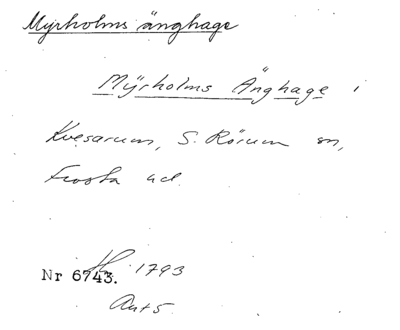 Myrholms änghage
Mÿrholms Änghage i
Kvesarum, S. Rörum sn,
Frosta hd.
Nr 6743. 1793
Ant 5.